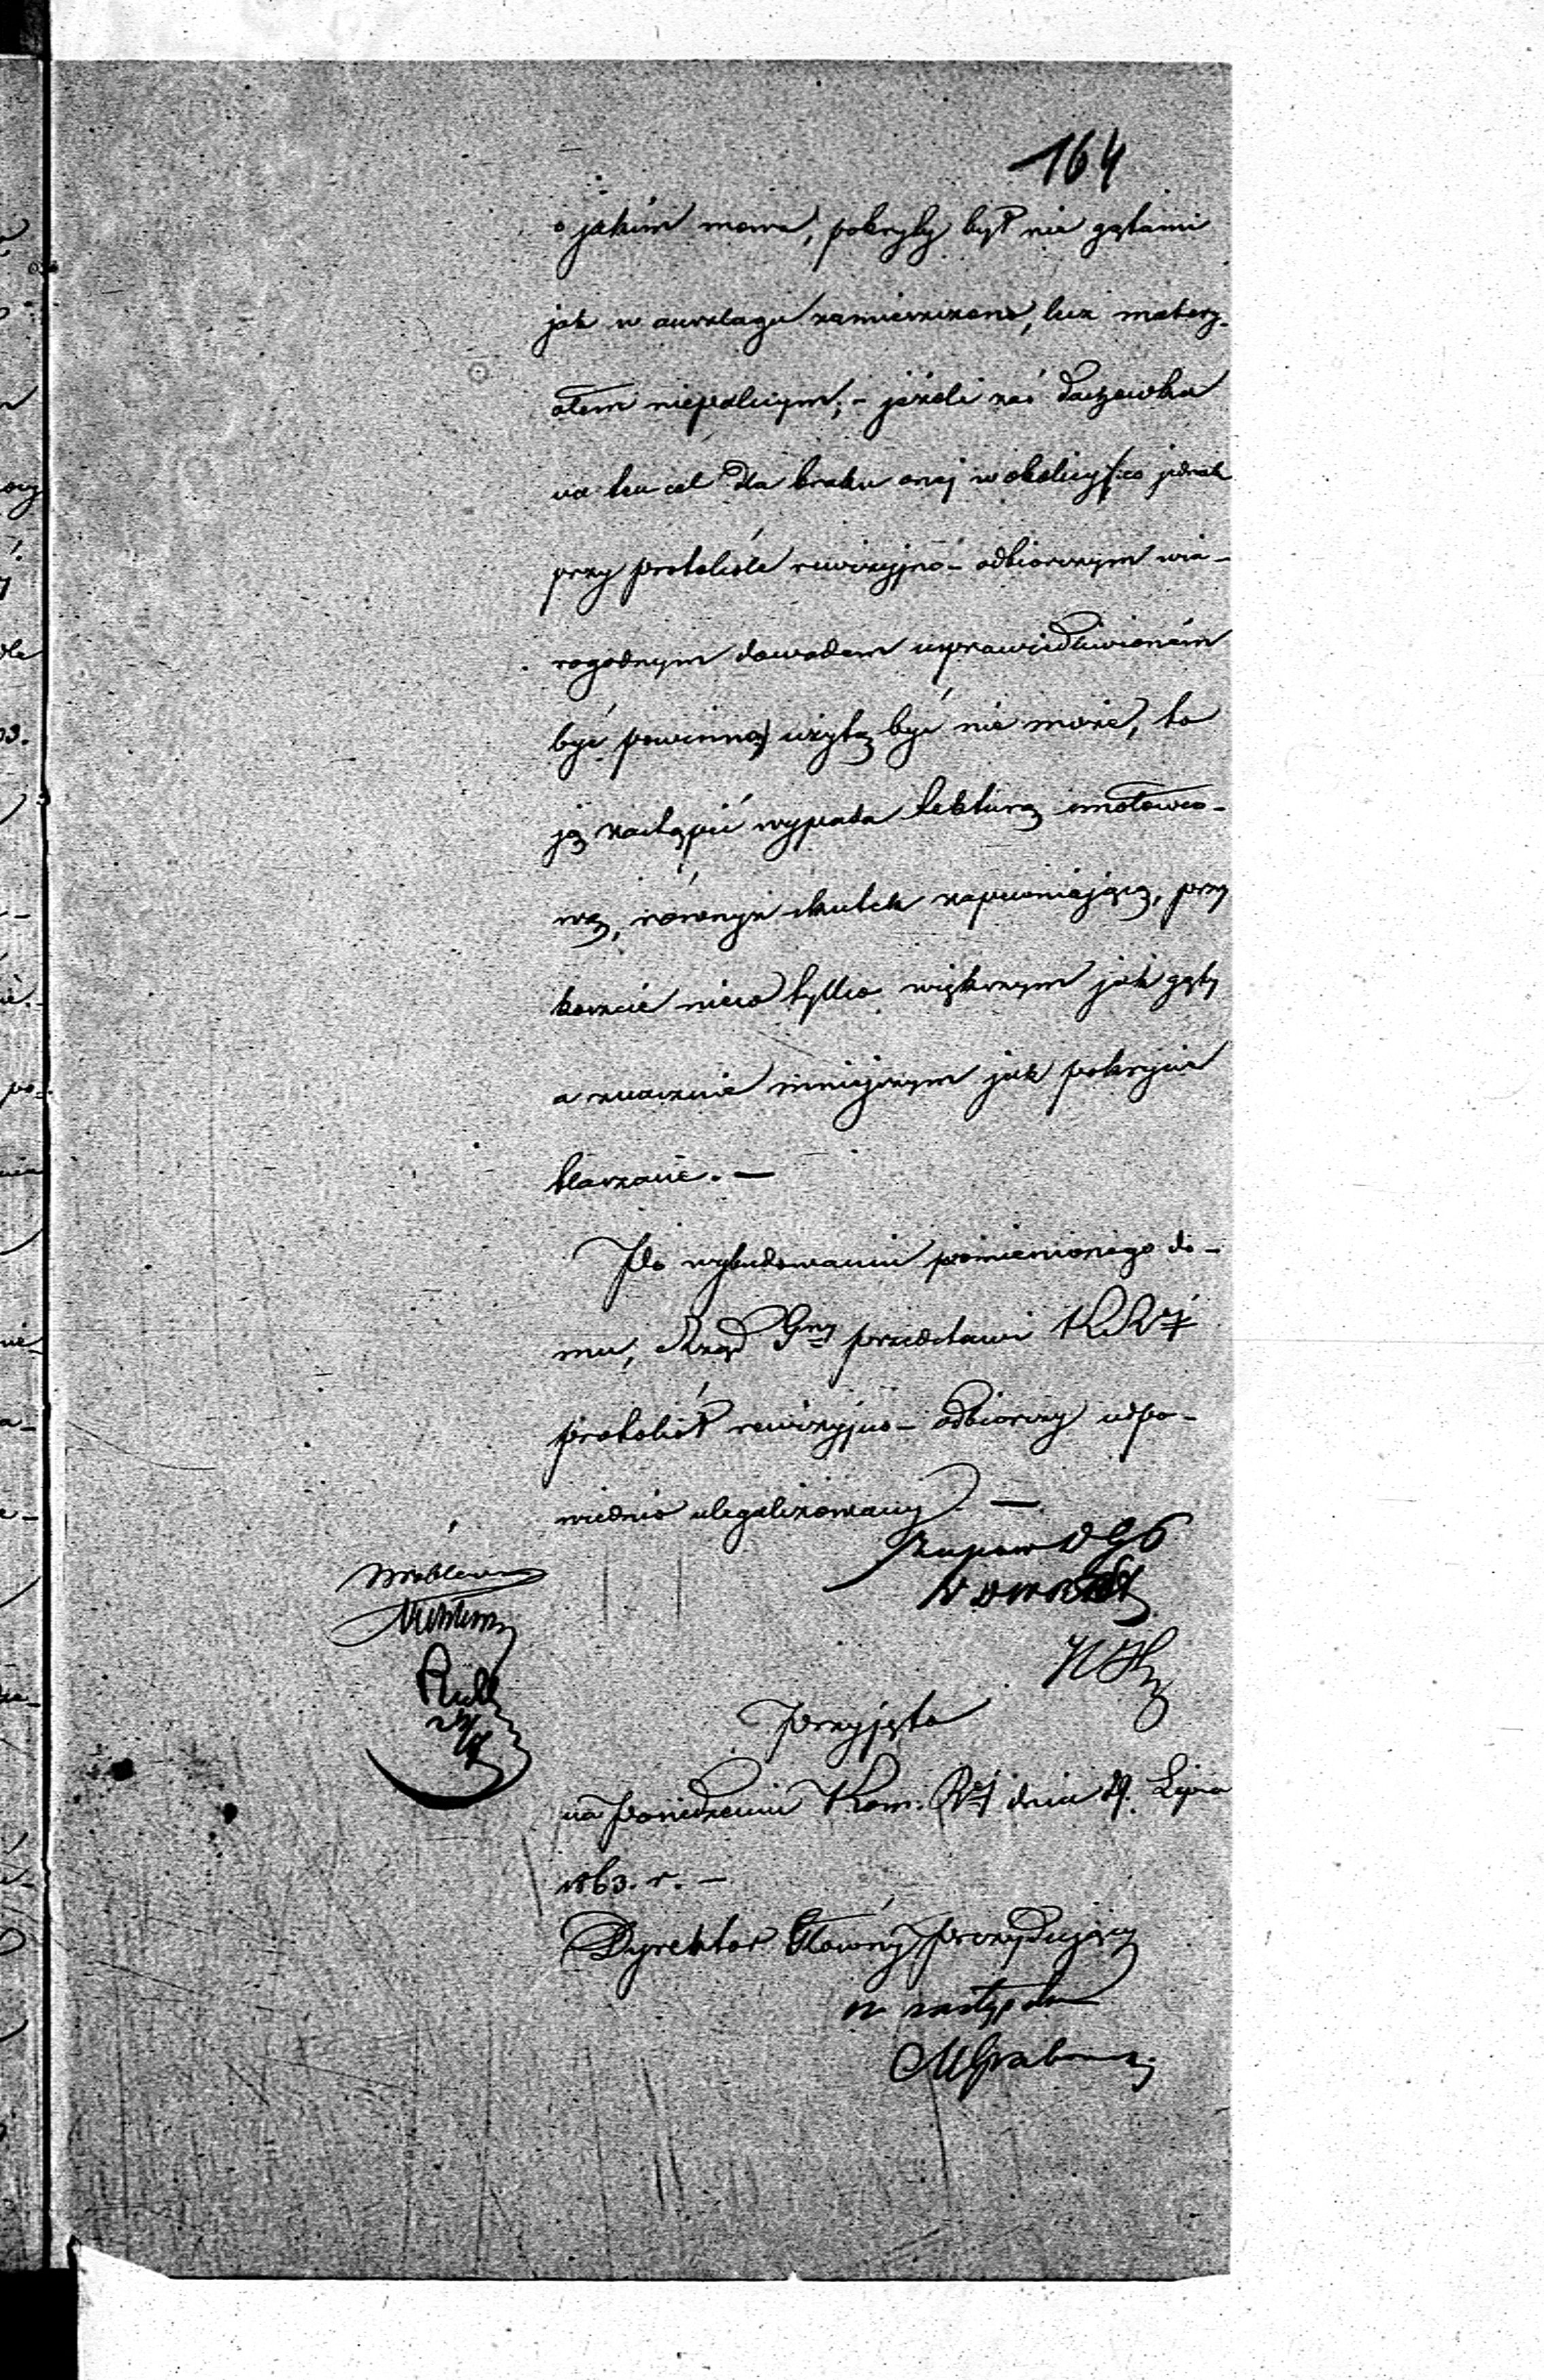 164
o jakim mowa, pokryty był nie gątami
jak w anszlagu zamieszczono, lecz matery-
ałem niepalnym; – jeżeli zaś dachówka
na ten cel dla braku onej w okolicy /: co jednak
przy protokóle rewizyjno – odbiorczym wia-
rogodnym dowodem usprawiedliwionem
być powinno :/ użytą być nie może, to
ją zastąpić wypada tekturą smołowco-
wą, równyż skutek zapewniającą, przy
koszcie nieco tylko większym jak gąty
a znacznie mniejszym jak pokrycie
blaszane. —
Po wybudowaniu pomienionego do-
mu, Rząd Gny przedstawi K. Rj
protokół rewizyjno – odbiorczy odpo-
wiednio ulegalizowany. —
Przyjęto
na posiedzeniu Kom. Rj dnia 29. Lipca
1863. r. –
Dyrektor Główny Prezydujący
w zastępstwie